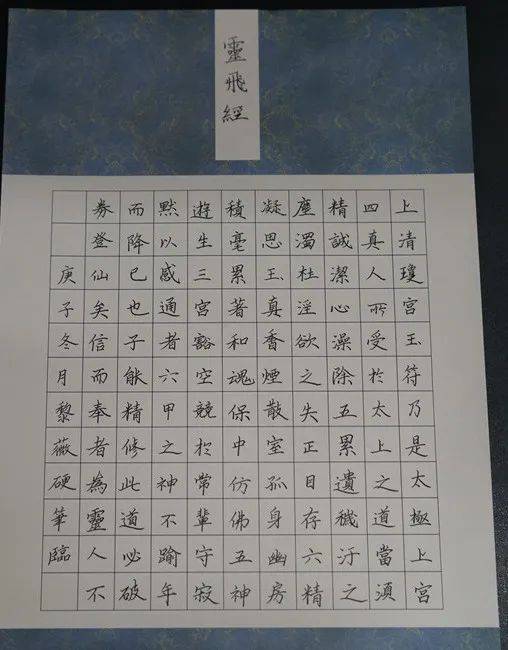 靈飛經
上清瓊宮玉符乃是太極上宮
四真人所受於太上之道當須
精誠潔心澡除五累遺穢汙之
塵濁杜淫欲之失正目存六精
凝思玉真香煙散室孤身幽房
積毫累著和魂保中仿佛五神
遊生三宮豁空競於常輩守寂
默以感通者六甲之神不踰年
而降已也子能精修此道必破
券登仙矣信而奉者為靈人不
庚子冬月黎薇硬筆臨